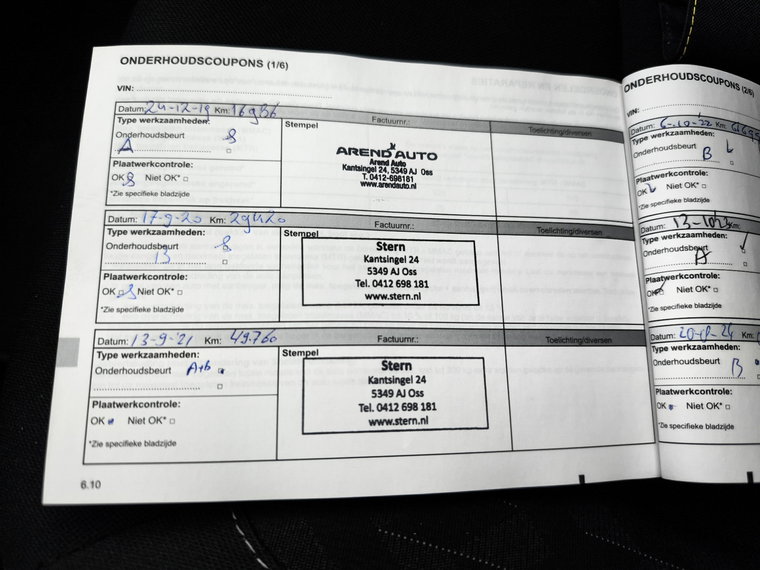 ONDERHOUDSCOUPONS (1/6)
VIN:
Datum: 24-12-19 Km: 16986
Factuurnr.:
Toelichting/diversen
Type werkzaamheden:
Onderhoudsbeurt
A
Stempel
AREND AUTO
Arend Auto
Kantsingel 24, 5349 AJ Oss
T. 0412-698181
www.arendauto.nl
Plaatwerkcontrole:
OK Niet OK*
*Zie specifieke bladzijde
Datum: 17-9-20 Km: 29420
Factuurnr.:
Toelichting/diversen
Type werkzaamheden:
Onderhoudsbeurt
B
Stempel
Stern
Kantsingel 24
5349 AJ Oss
Tel. 0412 698 181
www.stern.nl
Plaatwerkcontrole:
OK Niet OK*
*Zie specifieke bladzijde
Datum: 13-9-21 Km: 49.760
Factuurnr.:
Toelichting/diversen
Type werkzaamheden:
Onderhoudsbeurt A+b
Stempel
Stern
Kantsingel 24
5349 AJ Oss
Tel. 0412 698 181
www.stern.nl
Plaatwerkcontrole:
OK Niet OK*
*Zie specifieke bladzijde
6.10
ONDERHOUDSCOUPONS (2/6)
VIN:
Datum: 6-10-22 Km:
Type werkzaamheden:
Onderhoudsbeurt
B
Plaatwerkcontrole:
OK Niet OK*
*Zie specifieke bladzijde
Datum: Km:
Type werkzaamheden:
Onderhoudsbeurt
A
Plaatwerkcontrole:
OK Niet OK*
*Zie specifieke bladzijde
Datum: Km:
Type werkzaamheden:
Onderhoudsbeurt
B
Plaatwerkcontrole:
OK Niet OK*
*Zie specifieke bladzijde